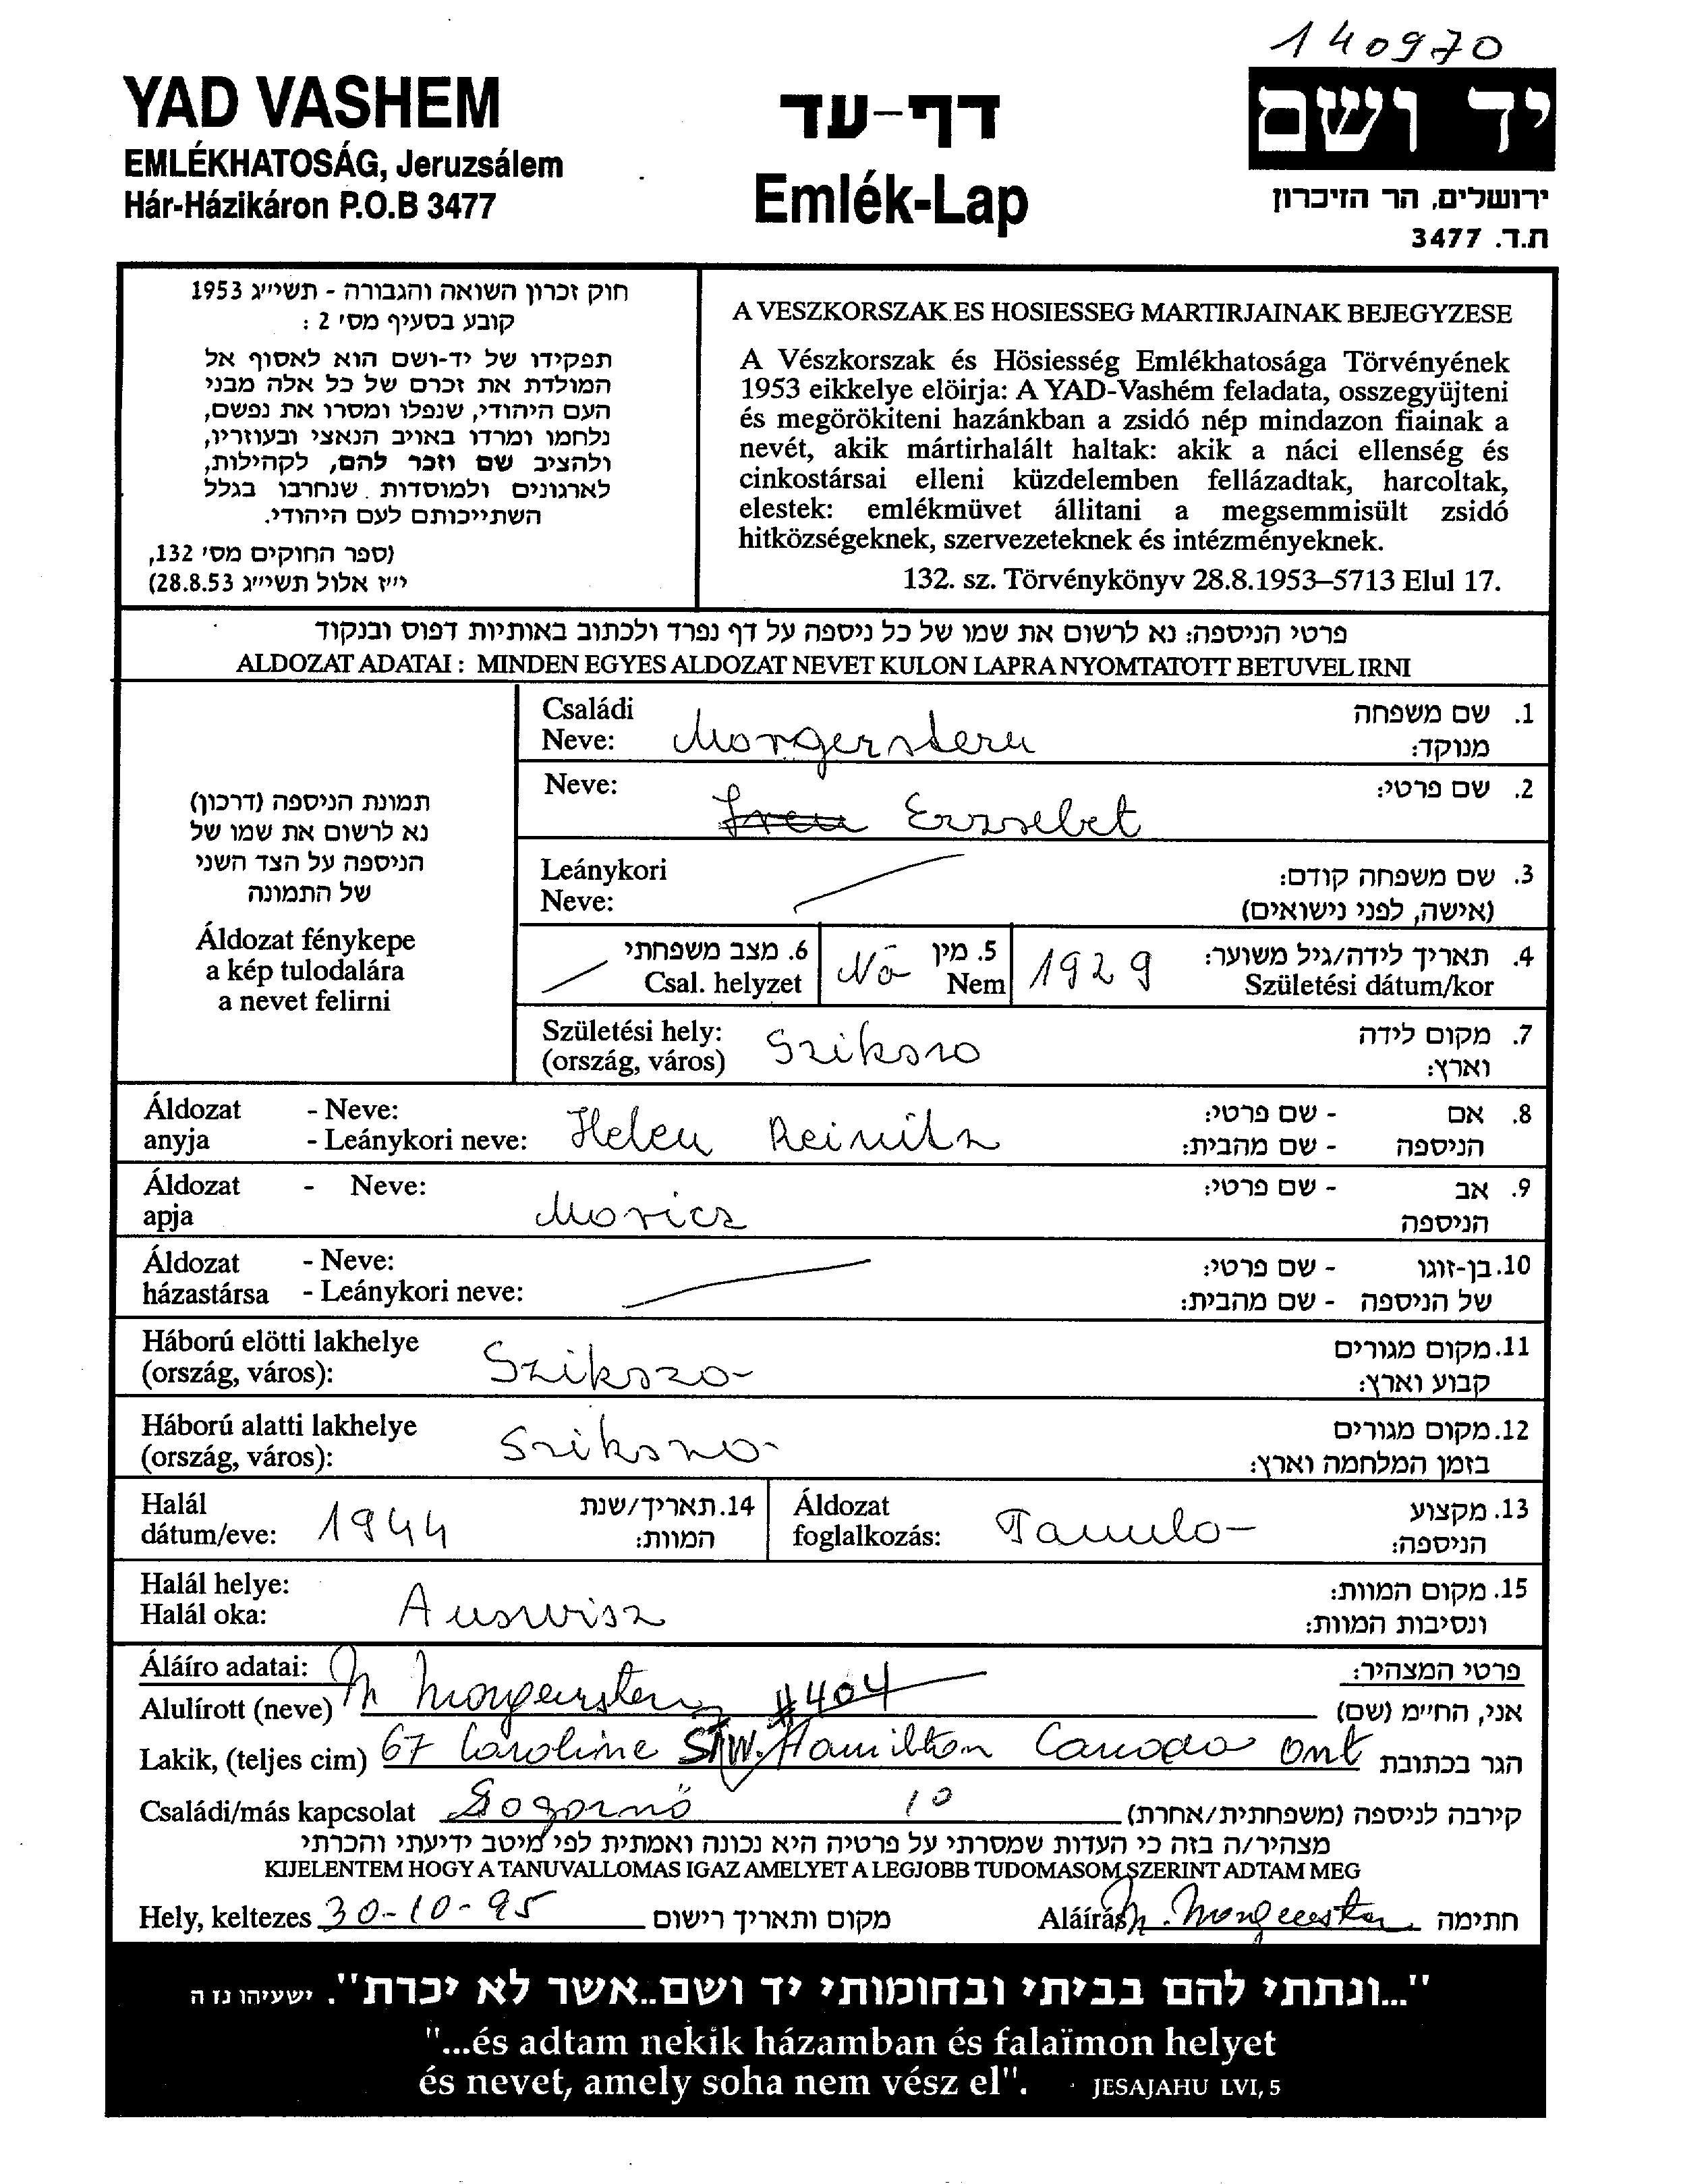 140970
YAD VASHEM
EMLÉKHATOSÁG, Jeruzsálem
Hár-Házikáron P.O.B 3477
דף-עד
Emlék-Lap
יד ושם
ירושלים, הר הזיכרון
ת.ד. 3477
חוק זכרון השואה והגבורה - תשי״ג 1953
קובע בסעיף מס׳ 2 :
תפקידו של יד-ושם הוא לאסוף אל
המולדת את זכרם של כל אלה מבני
העם היהודי, שנפלו ומסרו את נפשם,
נלחמו ומרדו באויב הנאצי ובעוזריו,
ולהציב שם וזכר להם, לקהילות,
לארגונים ולמוסדות שנחרבו בגלל
השתייכותם לעם היהודי.
(ספר החוקים מס׳ 132,
י״ז אלול תשי״ג 28.8.53)
A VESZKORSZAK ES HOSIESSEG MARTIRJAINAK BEJEGYZESE
A Vészkorszak és Hösiesség Emlékhatosága Törvényének
1953 eikkelye elöirja: A YAD-Vashém feladata, osszegyüjteni
és megörökiteni hazánkban a zsidó nép mindazon fiainak a
nevét, akik mártirhalált haltak: akik a náci ellenség és
cinkostársai elleni küzdelemben fellázadtak, harcoltak,
elestek: emlékmüvet állitani a megsemmisült zsidó
hitközségeknek, szervezeteknek és intézményeknek.
132. sz. Törvénykönyv 28.8.1953–5713 Elul 17.
פרטי הניספה: נא לרשום את שמו של כל ניספה על דף נפרד ולכתוב באותיות דפוס ובנקוד
ALDOZAT ADATAI : MINDEN EGYES ALDOZAT NEVET KULON LAPRA NYOMTATOTT BETUVEL IRNI
תמונת הניספה (דרכון)
נא לרשום את שמו של
הניספה על הצד השני
של התמונה
Áldozat fénykepe
a kép tulodalára
a nevet felirni
Családi
Neve: Morgerstern
1. שם משפחה
מנוקד:
Neve: Iren Erzsebet
2. שם פרטי:
Leánykori
Neve:
3. שם משפחה קודם:
(אישה, לפני נישואים)
6. מצב משפחתי
Csal. helyzet
5. מין
Nem Nő
4. תאריך לידה/גיל משוער:
Születési dátum/kor 1929
Születési hely:
(ország, város) Szikszo
7. מקום לידה
וארץ:
Áldozat - Neve:
anyja - Leánykori neve: Helen Reinitz
8. אם - שם פרטי:
הניספה - שם מהבית:
Áldozat - Neve:
apja Moricz
9. אב - שם פרטי:
הניספה
Áldozat - Neve:
házastársa - Leánykori neve:
10. בן-זוגו - שם פרטי:
של הניספה - שם מהבית:
Háború elötti lakhelye
(ország, város): Szikszo
11. מקום מגורים
קבוע וארץ:
Háború alatti lakhelye
(ország, város): Szikszo
12. מקום מגורים
בזמן המלחמה וארץ:
Halál
dátum/eve: 1944
14. תאריך/שנת
המוות:
Áldozat
foglalkozás: Tanulo
13. מקצוע
הניספה:
Halál helye:
Halál oka: Auswisz
15. מקום המוות:
ונסיבות המוות:
Áláíro adatai:
פרטי המצהיר:
Alulírott (neve) M Morgenstern #404 אני, החיימ (שם)
Lakik, (teljes cim) 67 Caroline St W. Hamilton Canada Ont הגר בכתובת
Családi/más kapcsolat Sogornő 10 קירבה לניספה (משפחתית/אחרת)
מצהיר/ה בזה כי העדות שמסרתי על פרטיה היא נכונה ואמתית לפי מיטב ידיעתי והכרתי
KIJELENTEM HOGY A TANUVALLOMAS IGAZ AMELYET A LEGJOBB TUDOMASOM SZERINT ADTAM MEG
Hely, keltezes 30-10-95 מקום ותאריך רישום Aláírás M. Morgenstern חתימה
"...ונתתי להם בביתי ובחומותי יד ושם..אשר לא יכרת". ישעיהו נז ה
"...és adtam nekik házamban és falaïmon helyet
és nevet, amely soha nem vész el". JESAJAHU LVI, 5